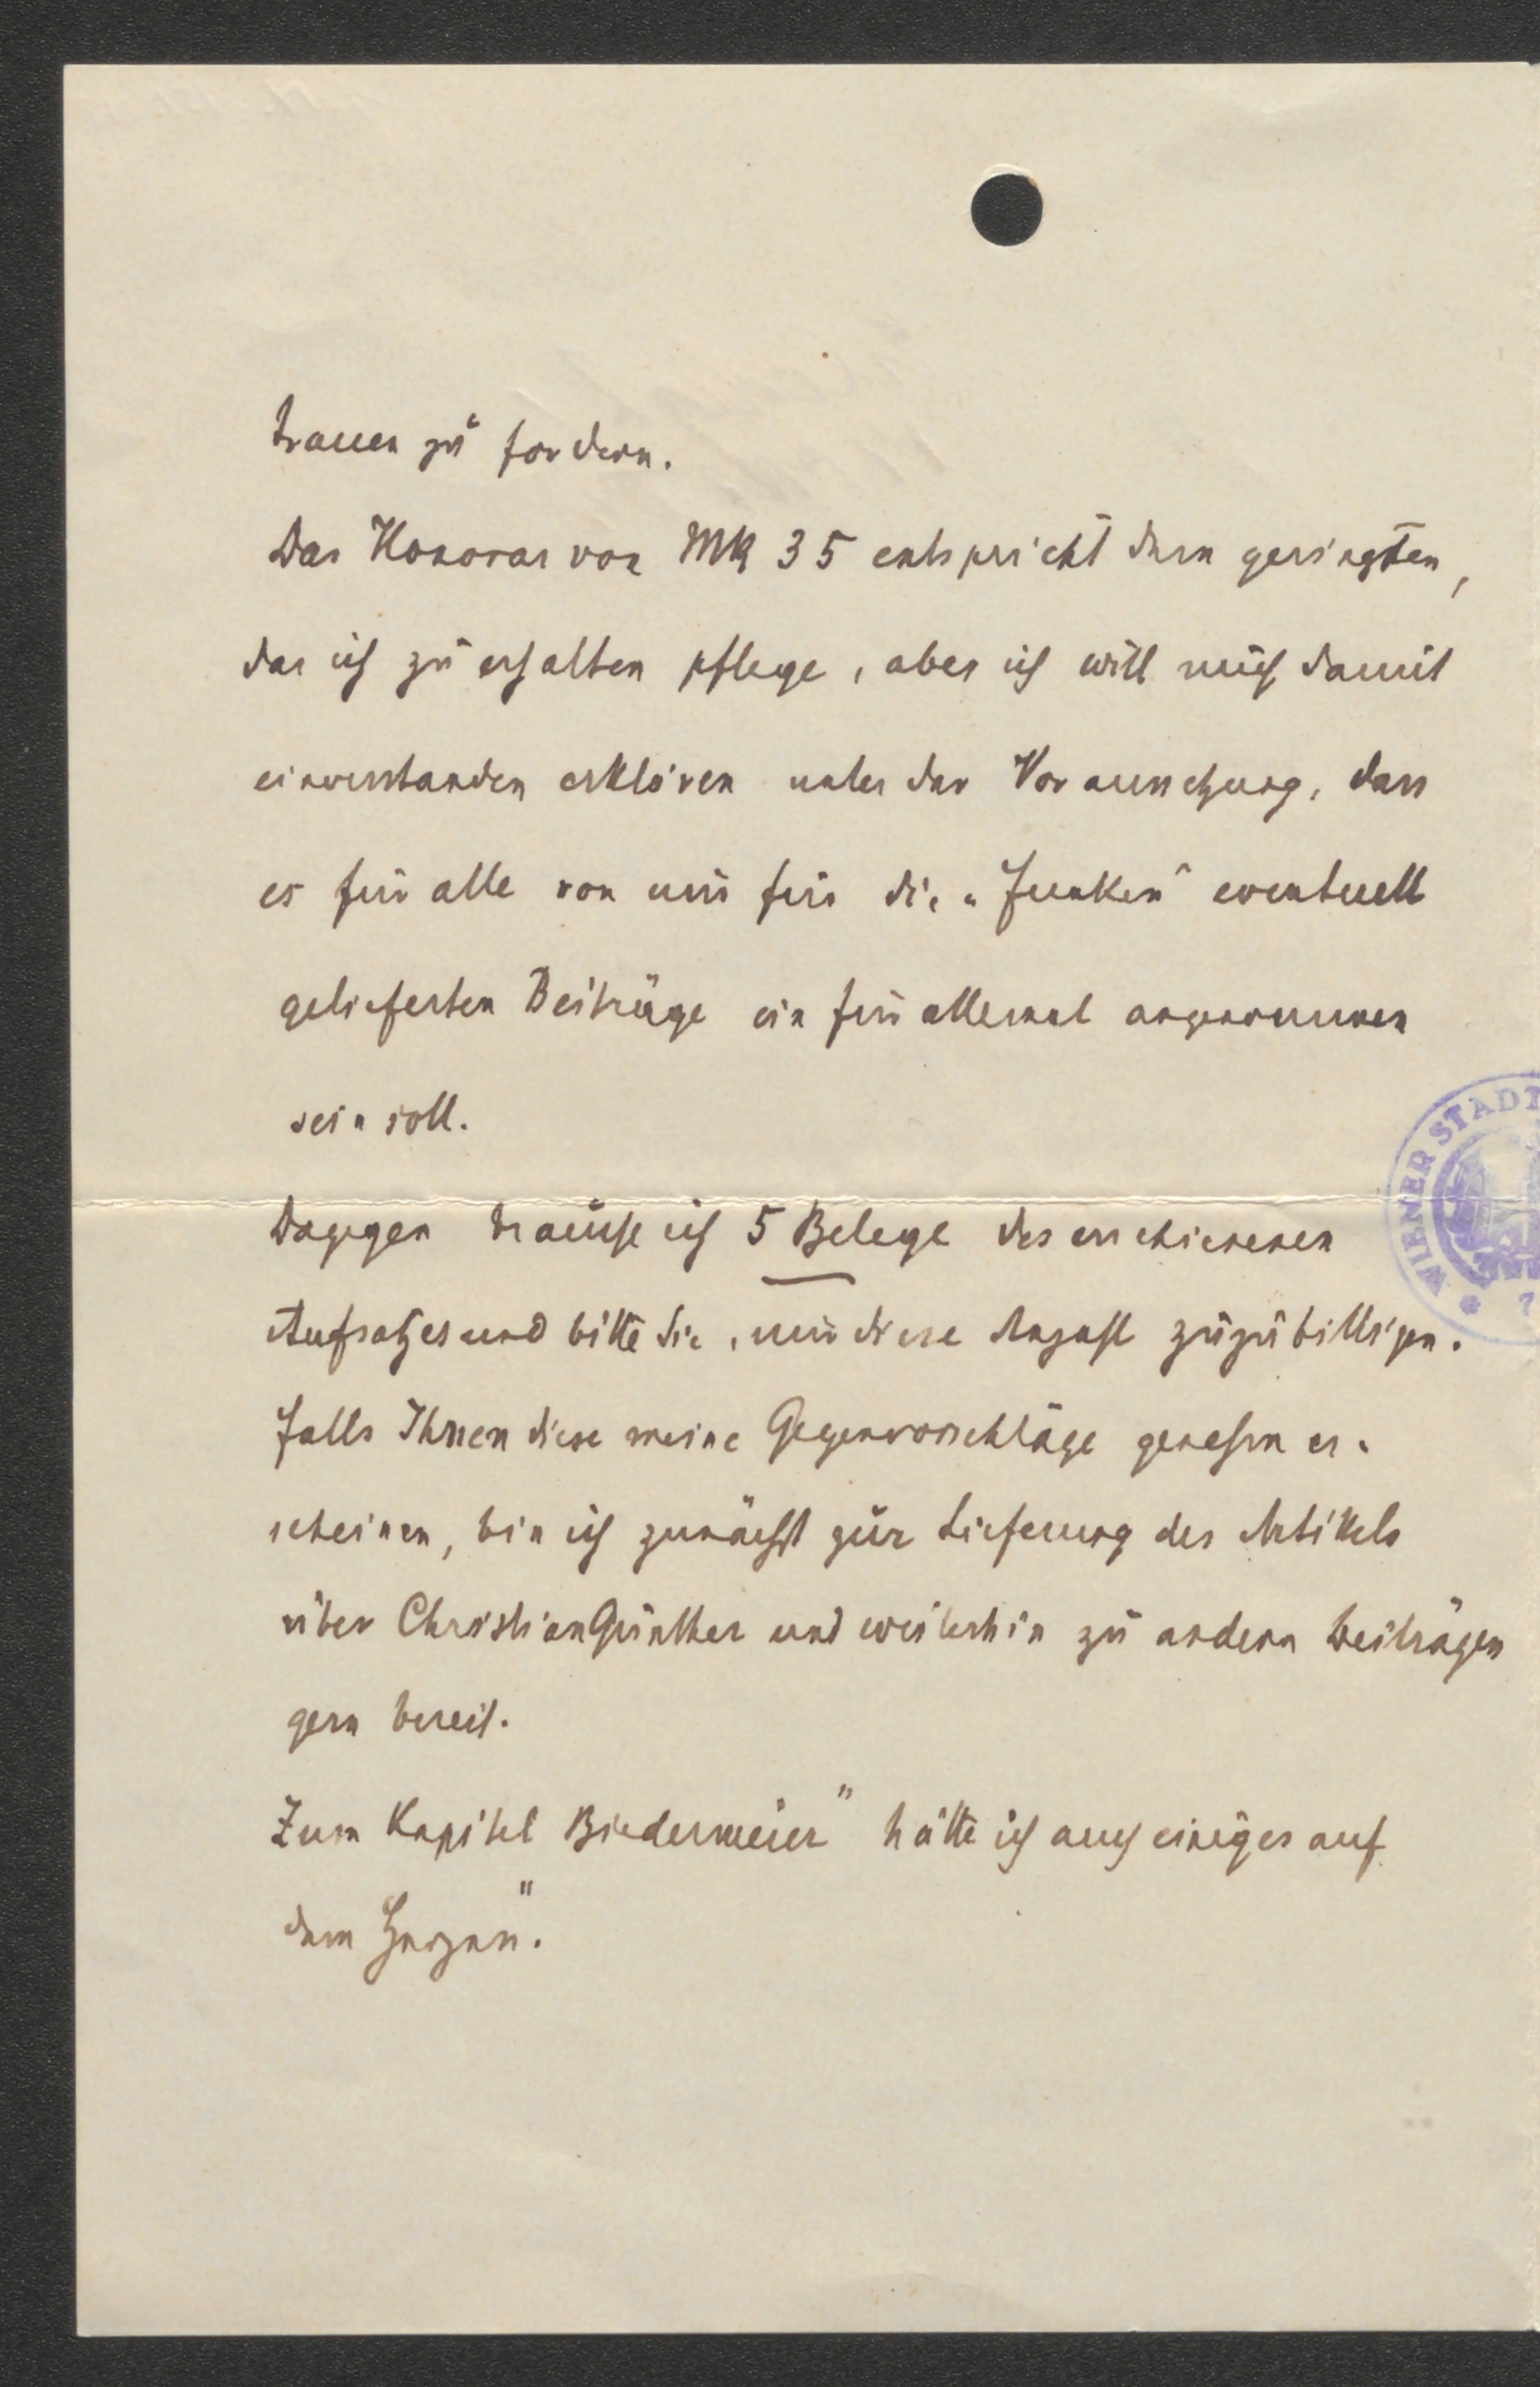 trauen zu fordern.
Das Honorar von Mk 35 entspricht dem geringsten,
das ich zu erhalten pflege, aber ich will mich damit
einverstanden erklären unter der Voraussetzung, dass
es für alle von mir für die „Funken" eventuell
gelieferten Beiträge ein für allemal angenommen
sein soll.
Dagegen brauche ich 5 Belege des erschienenen
Aufsatzes und bitte Sie, mir diese Anzahl zuzubilligen.
Falls Ihnen diese meine Gegenvorschläge genehm er-
scheinen, bin ich zunächst zur Lieferung des Artikels
über Christian Günther und weiterhin zu andern Beiträgen
gern bereit.
Zum Kapitel Biedermeier" hätte ich auch einiges auf
dem Herzen".
WIENER STADT
7